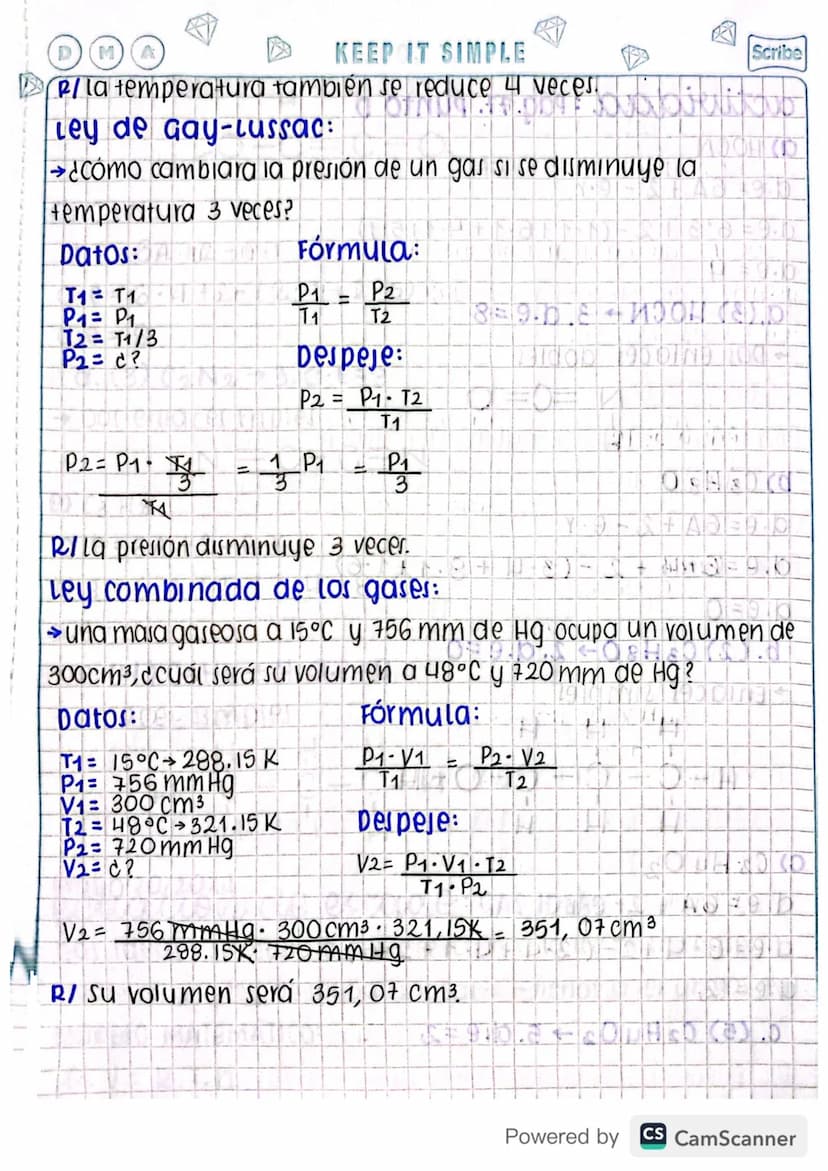 D M A KEEP IT SIMPLE Scribe
R/ La temperatura también se reduce 4 veces.
Ley de Gay-Lussac:
→¿Cómo cambiara la presión de un gas si se disminuye la
temperatura 3 veces?
Datos: Fórmula:
T1 = T1
P1 = P1
T2 = T1/3
P2 = ¿?
P1/T1 = P2/T2
Despeje:
P2 = P1 · T2 / T1
P2 = P1 · T1/3 / T1 = 1/3 P1 = P1/3
R/ La presión disminuye 3 vecer.
Ley combinada de los gases:
→una masa gaseosa a 15°C y 756 mm de Hg ocupa un volumen de
300cm³,¿cuál será su volumen a 48°C y 720 mm de Hg?
Datos: Fórmula:
T1 = 15°C → 288.15 K
P1 = 756 mmHg
V1 = 300 cm³
T2 = 48°C → 321.15 K
P2 = 720 mmHg
V2 = ¿?
P1 · V1 / T1 = P2 · V2 / T2
Despeje:
V2 = P1 · V1 · T2 / T1 · P2
V2 = 756 mmHg · 300 cm³ · 321,15K / 288.15K · 720 mmHg = 351,07 cm³
R/ Su volumen será 351,07 cm³.
Powered by CS CamScanner